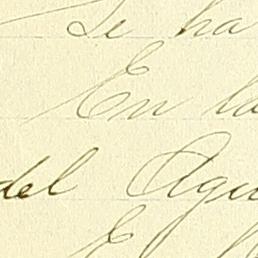 Se ha
En la
del Agu
E